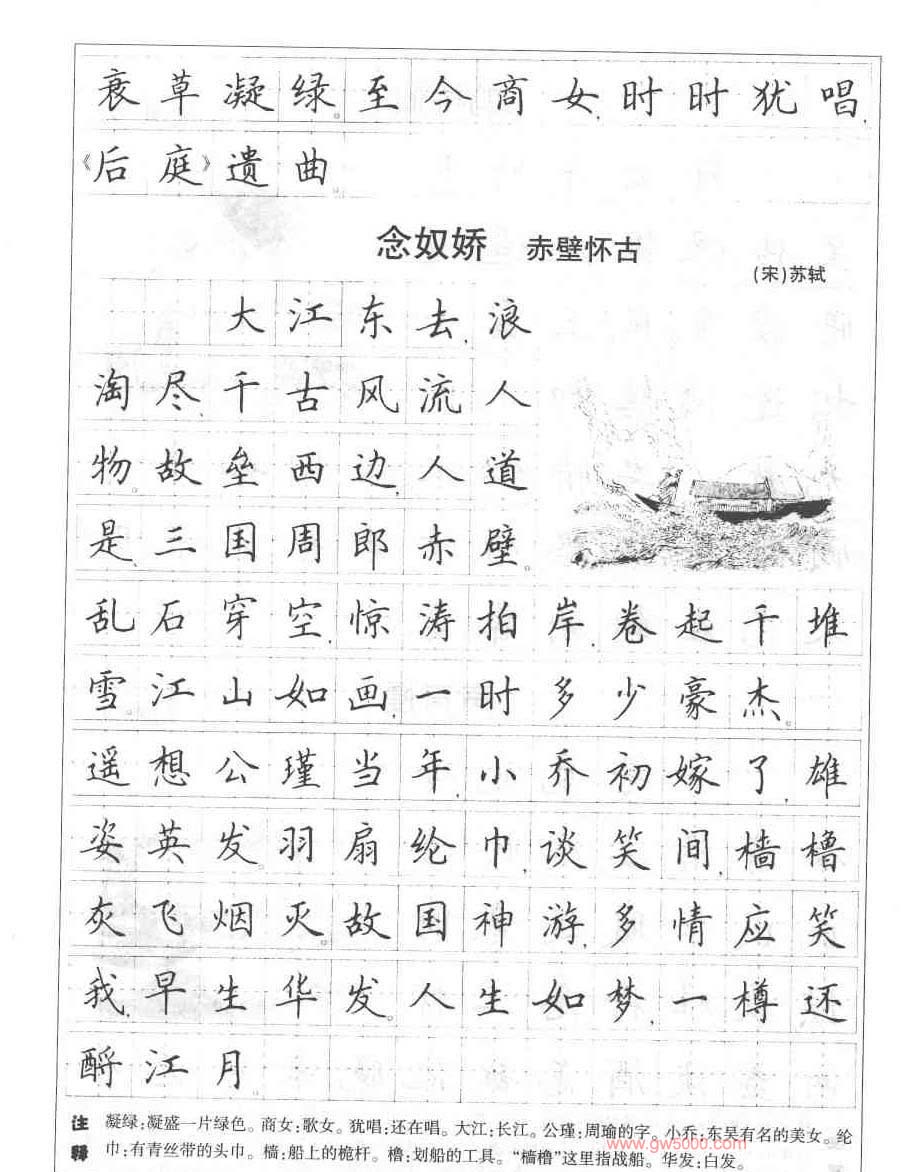 衰草凝绿。至今商女，时时犹唱，
《后庭》遗曲。
念奴娇 赤壁怀古
(宋)苏轼
大江东去，浪
淘尽，千古风流人
物。故垒西边，人道
是，三国周郎赤壁。
乱石穿空，惊涛拍岸，卷起千堆
雪。江山如画，一时多少豪杰。
遥想公瑾当年，小乔初嫁了，雄
姿英发。羽扇纶巾，谈笑间，樯橹
灰飞烟灭。故国神游，多情应笑
我，早生华发。人生如梦，一樽还
酹江月
注 凝绿:凝盛一片绿色。商女:歌女。犹唱:还在唱。大江:长江。公瑾:周瑜的字。小乔:东吴有名的美女。纶
释 巾:有青丝带的头巾。樯:船上的桅杆。橹:划船的工具。“樯橹”这里指战船。华发:白发。
www.gw5000.com